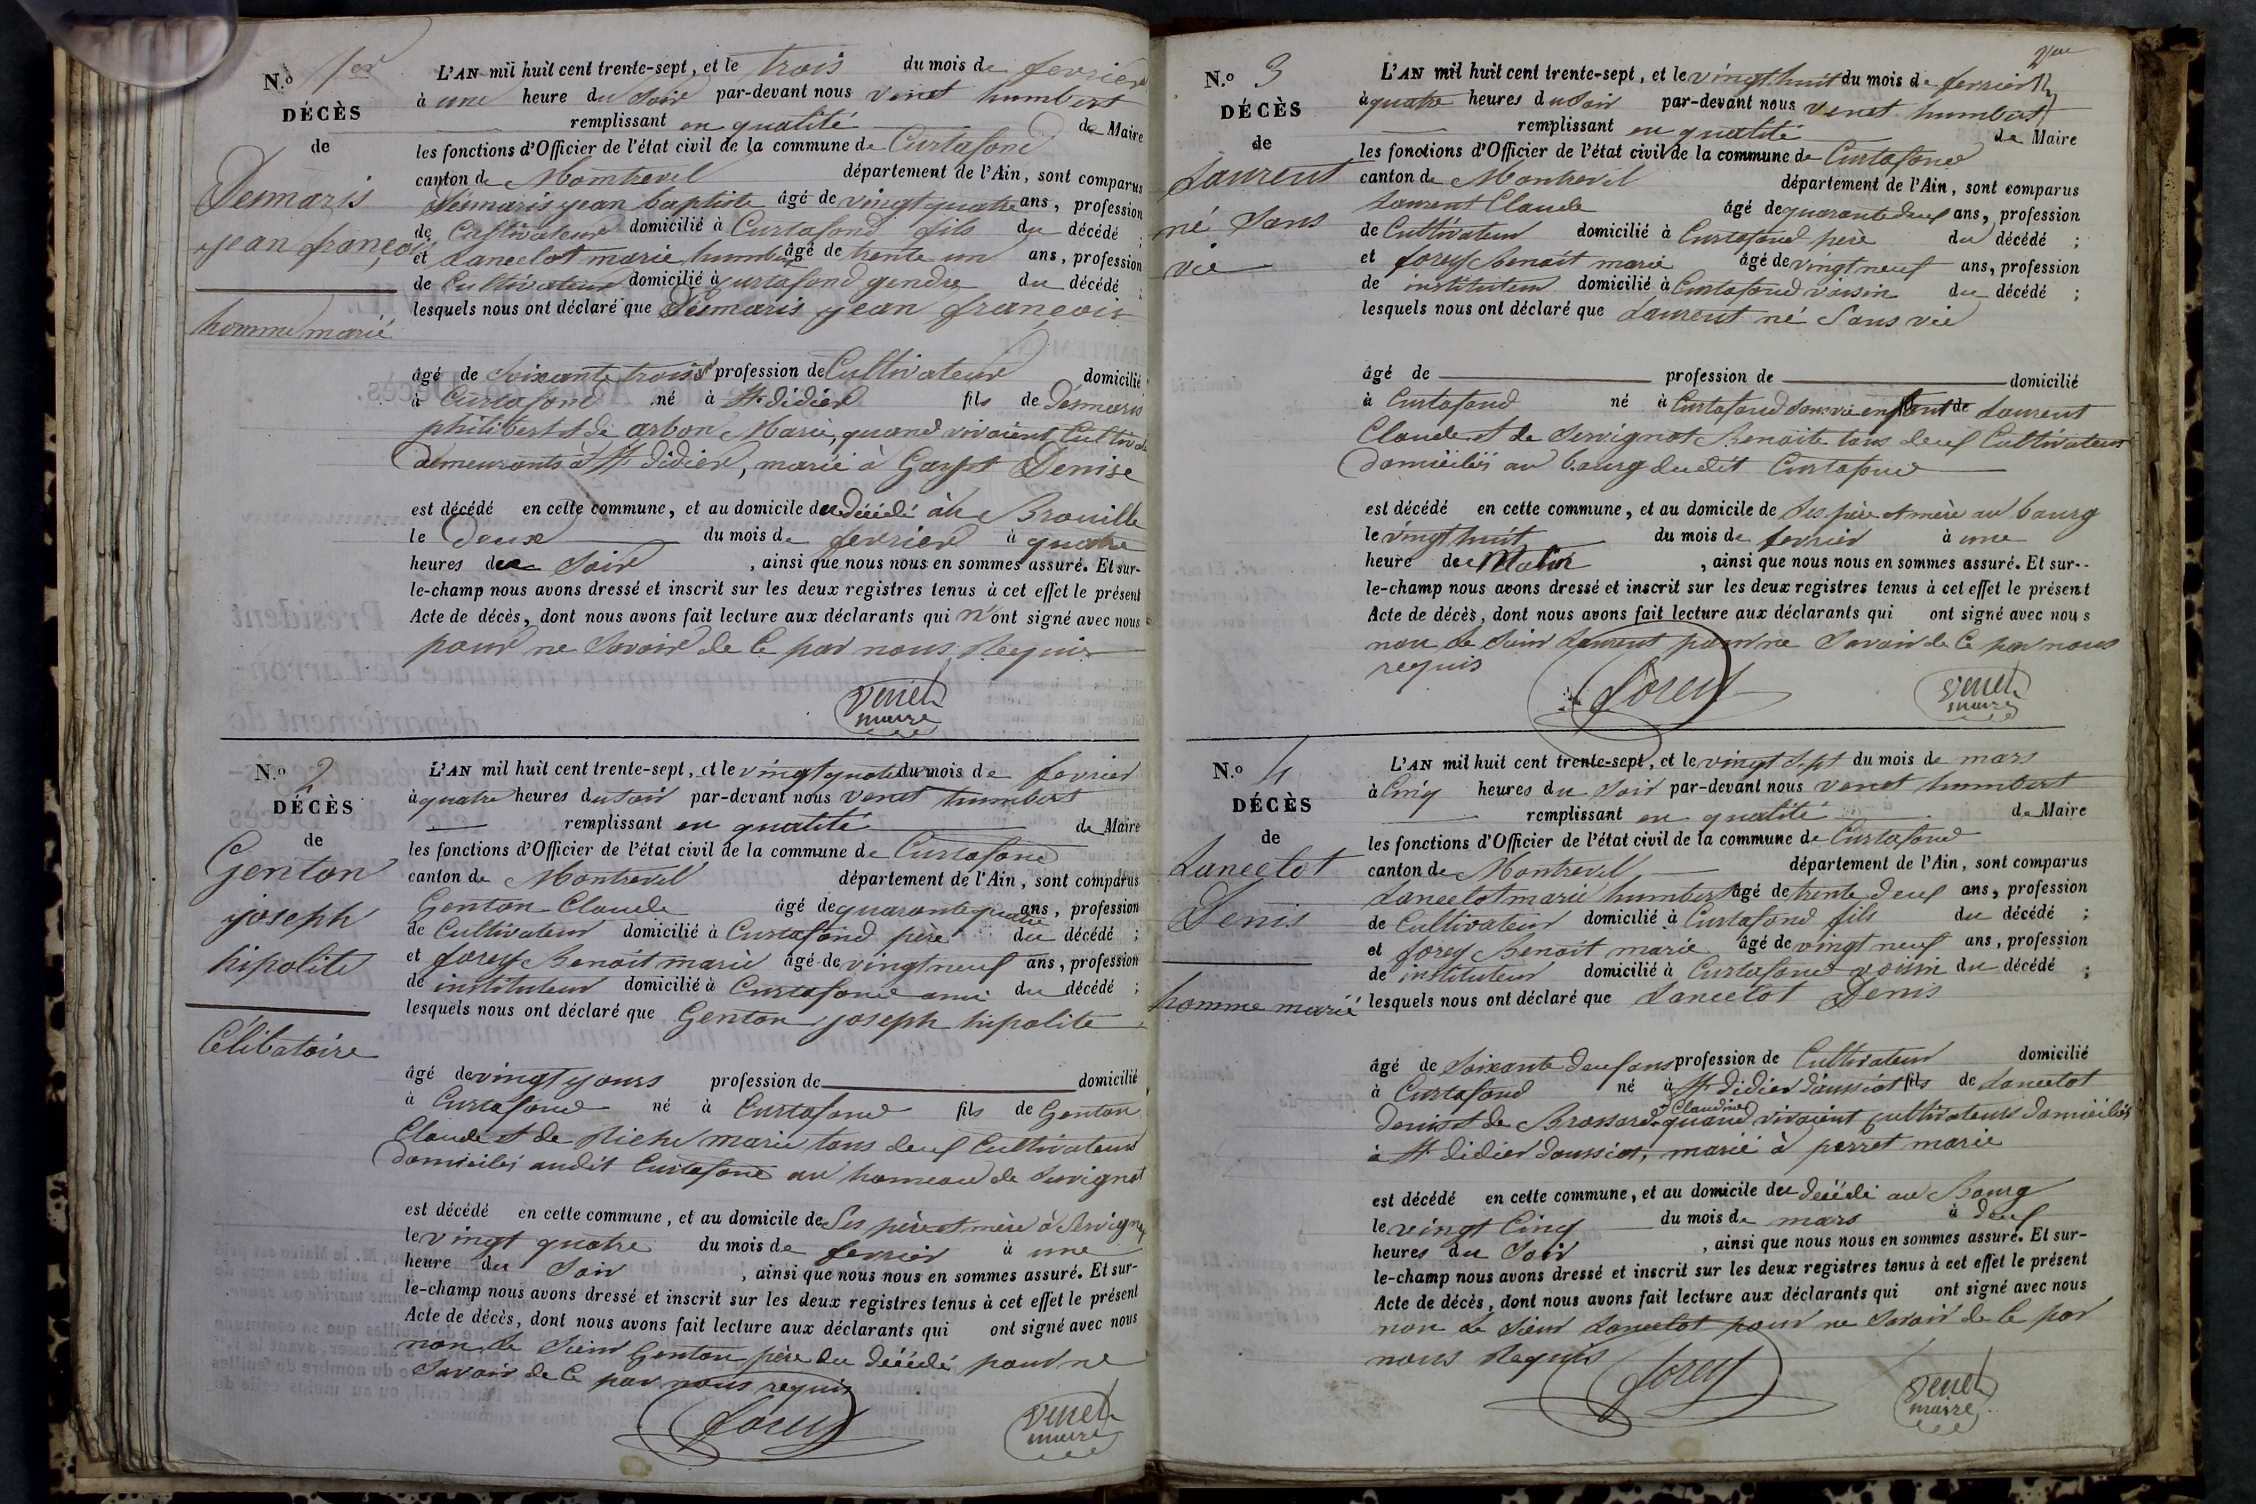 N.o 1er
DÉCÈS
de
Desmaris
jean françois
homme marié
L'AN mil huit cent trente-sept, et le trois du mois de fevrier
à une heure du Soir par-devant nous venet humbert
remplissant en qualité de Maire
les fonctions d'Officier de l'état civil de la commune de Curtafond
canton de Montrevel département de l'Ain, sont comparus
Desmaris jean baptiste âgé de vingt quatre ans, profession
de Cultivateur domicilié à Curtafond fils du décédé ;
et Lancelot marie humbert âgé de trente un ans, profession
de Cultivateur domicilié à Curtafond gendre du décédé ;
lesquels nous ont déclaré que Desmaris jean françois
âgé de Soixante trois profession de Cultivateur domicilié
à Curtafond né à St didier fils de Desmaris
philibert et de arbon Marie, quand vivaient Cultiv
demeurants à St didier, marié à Denise
est décédé en cette commune, et au domicile du décédé à la Brouille
le Deux du mois de fevrier à quatre
heures du Soir , ainsi que nous nous en sommes assuré. Et sur-
le-champ nous avons dressé et inscrit sur les deux registres tenus à cet effet le présent
Acte de décès, dont nous avons fait lecture aux déclarants qui n'ont signé avec nous
pour ne Savoir de ce par nous Requis
Venet
maire
N.o 2
DÉCÈS
de
Genton
joseph
hipolite
Célibatoire
L'AN mil huit cent trente-sept, et le vingt quatre du mois de fevrier
à quatre heures du Soir par-devant nous venet humbert
remplissant en qualité de Maire
les fonctions d'Officier de l'état civil de la commune de Curtafond
canton de Montrevel département de l'Ain, sont comparus
Genton Claude âgé de quarante quatre ans, profession
de Cultivateur domicilié à Curtafond père du décédé ;
et forey Benoit marie âgé de vingt neuf ans, profession
de instituteur domicilié à Curtafond ami du décédé ;
lesquels nous ont déclaré que Genton joseph hipolite
âgé de vingt jours profession de domicilié
à Curtafond né à Curtafond fils de Genton
Claude et de Michel marie tous deux Cultivateurs
domiciliés audit Curtafond au hameau de Servignat
est décédé en cette commune, et au domicile de Ses père et mère à Servignat
le vingt quatre du mois de fevrier à une
heure du Soir , ainsi que nous nous en sommes assuré. Et sur-
le-champ nous avons dressé et inscrit sur les deux registres tenus à cet effet le présent
Acte de décès, dont nous avons fait lecture aux déclarants qui ont signé avec nous
non le Sieur Genton père du décédé pour ne
Savoir de ce par nous requis
forey
Venet
maire
2me
N.o 3
DÉCÈS
de
Laurent
né Sans
vie
L'AN mil huit cent trente-sept, et le vingt huit du mois de fevrier
à quatre heures du Soir par-devant nous venet humbert
remplissant en qualité de Maire
les fonctions d'Officier de l'état civil de la commune de Curtafond
canton de Montrevel département de l'Ain, sont comparus
Laurent Claude âgé de quarante deux ans, profession
de Cultivateur domicilié à Curtafond père du décédé ;
et forey Benoit marie âgé de vingt neuf ans, profession
de instituteur domicilié à Curtafond voisin du décédé ;
lesquels nous ont déclaré que Laurent né Sans vie
âgé de profession de domicilié
à Curtafond né à Curtafond Sans vie enfant de Laurent
Claude et de Servignat Benoite tous deux Cultivateurs
domiciliés au bourg dudit Curtafond
est décédé en cette commune, et au domicile de Ses père et mère au bourg
le vingt huit du mois de fevrier à une
heure du Matin , ainsi que nous nous en sommes assuré. Et sur-
le-champ nous avons dressé et inscrit sur les deux registres tenus à cet effet le présent
Acte de décès, dont nous avons fait lecture aux déclarants qui ont signé avec nous
non le Sieur Laurent pour ne Savoir de ce par nous
requis
forey
Venet
maire
N.o 4
DÉCÈS
de
Lancelot
Denis
homme marié
L'AN mil huit cent trente-sept, et le vingt Sept du mois de mars
à Cinq heures du Soir par-devant nous venet humbert
remplissant en qualité de Maire
les fonctions d'Officier de l'état civil de la commune de Curtafond
canton de Montrevel département de l'Ain, sont comparus
Lancelot marie humbert âgé de trente deux ans, profession
de Cultivateur domicilié à Curtafond fils du décédé ;
et forey Benoit marie âgé de vingt neuf ans, profession
de instituteur domicilié à Curtafond voisin du décédé ;
lesquels nous ont déclaré que Lancelot Denis
âgé de Soixante deux ans profession de Cultivateur domicilié
à Curtafond né à St didier daussiat fils de Lancelot
Denis et de Brossard Claudine quand vivaient Cultivateurs domiciliés
à St didier daussiat, marié à perret marie
est décédé en cette commune, et au domicile du décédé au Bourg
le vingt Cinq du mois de mars à deux
heures du Soir , ainsi que nous nous en sommes assuré. Et sur-
le-champ nous avons dressé et inscrit sur les deux registres tenus à cet effet le présent
Acte de décès, dont nous avons fait lecture aux déclarants qui ont signé avec nous
non le Sieur Lancelot pour ne Savoir de ce par
nous Requis
forey
Venet
maire